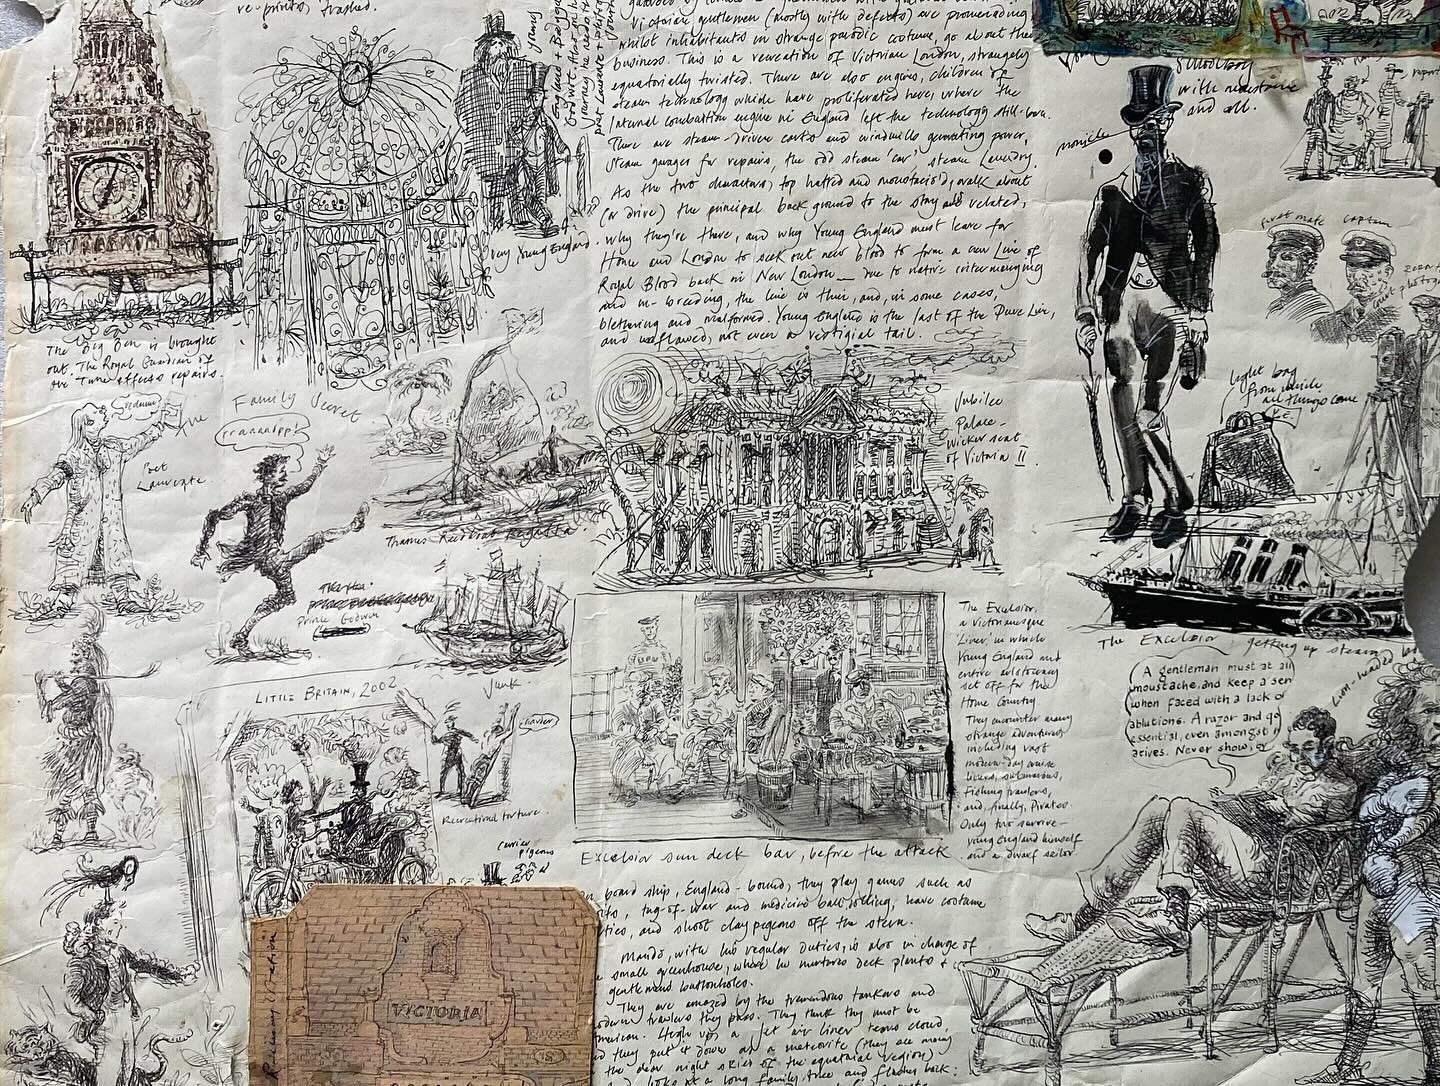 reprints, trashed.
Victorian gentlemen (mostly with defects) are promenading
whilst inhabitants in strange parodic costume, go about their
business. This is a recreation of Victorian London, strangely
equatorially twisted. There are also engines, children of
steam technology which have proliferated here, where the
Internal combustion engine in England left the technology still-born.
There are steam-driven carts and windmills generating power,
steam garages for repairs, the odd steam 'car' steam laundry.
As the two characters, top hatted and moustacio'd, walk about
(or drive) the principal back ground to the story are related,
why they're there, and why Young England must leave for
Home and London to seek out new blood to form a new Line of
Royal Blood back in New London — due to native intermarrying
and in-breeding, the line is thin, and, in some cases,
blethering and malformed. Young England is the last of the Pure Line,
and unflawed, not even a vestigial tail.
Very Young England.
The Big Ben is brought
out. The Royal Guardian of
the Time effects repairs.
Family Secret
Poet
Laureate.
Thames Red Boat Regatta
Prince Godwin
Junk
LITTLE BRITAIN, 2002
Recreational torture.
Carrier
pigeons
VICTORIA
Jubilee
Palace –
wicker seat
of Victoria II.
The Excelsior,
a Victorianesque
'Liner' in which
Young England and
entire aristocracy
set off for the
Home Country.
They encounter many
strange adventures
including vast
modern-day cruise
liners, submarines,
Fishing trawlers,
and, finally, Pirates.
Only two survive –
Young England himself
and a dwarf sailor
Excelsior sun deck bar, before the attack
board ship, England-bound, they play games such as
tug-of-war and medicine ball rolling, have costume
and shoot clay pigeons off the stern.
with his regular duties, is also in charge of
small greenhouse, where he nurtures deck plants +
gentlemens buttonholes.
They are amazed by the tremendous tankers and
modern trawlers they pass. They think they must be
American. High up, a jet air liner tears cloud,
they put it down as a meteorite (they see many
the clear night skies of the equatorial region)
looks at a long family tree and flashes back:
with moustache
and all.
monicle
First mate
captain
Light bag
from which
all things come
The Excelsior getting up steam
A gentleman must at all
moustache, and keep a sen
when faced with a lack of
ablutions. A razor and go
essential, even amongst n
atives. Never show, or
Lion-headed